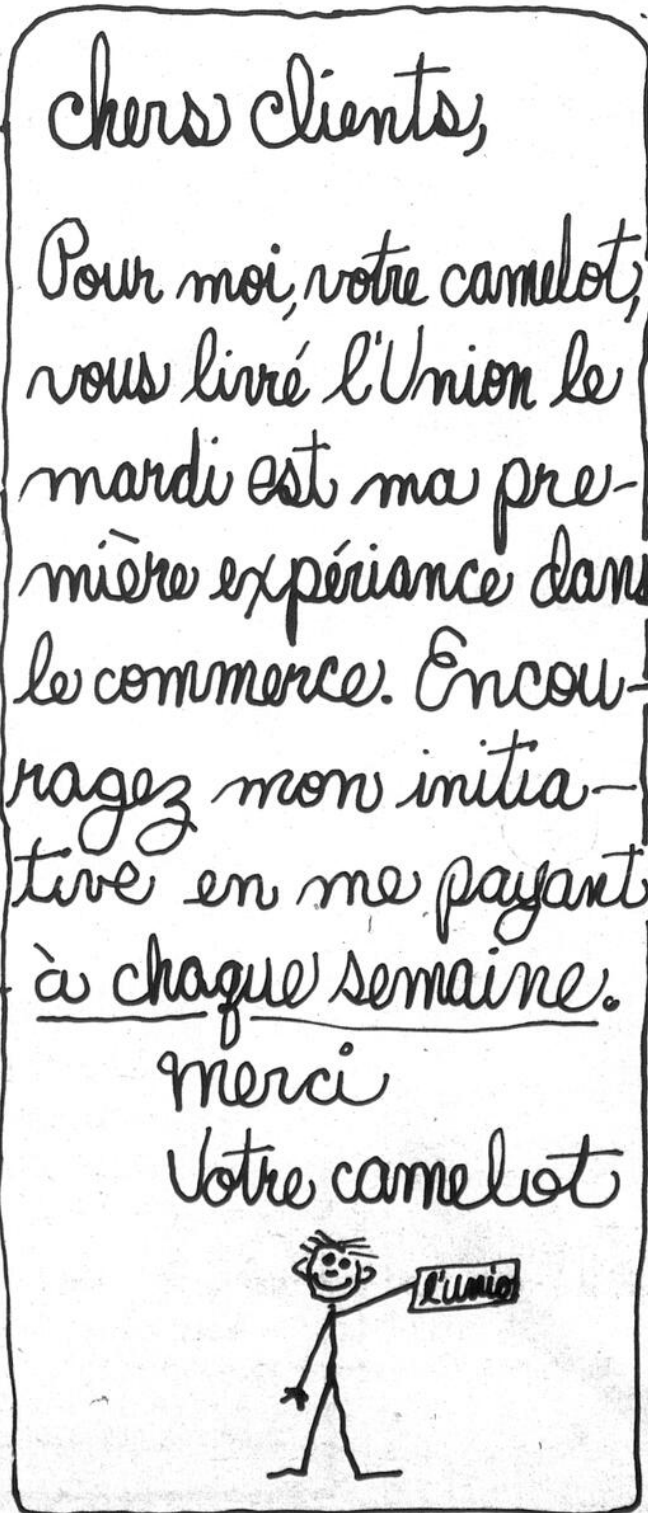 chers clients,
Pour moi, votre camelot,
vous livré l'Union le
mardi est ma pre-
mière expériance dans
le commerce. Encou-
ragez mon initia-
tive en me payant
à chaque semaine.
Merci
Votre camelot
l'unio